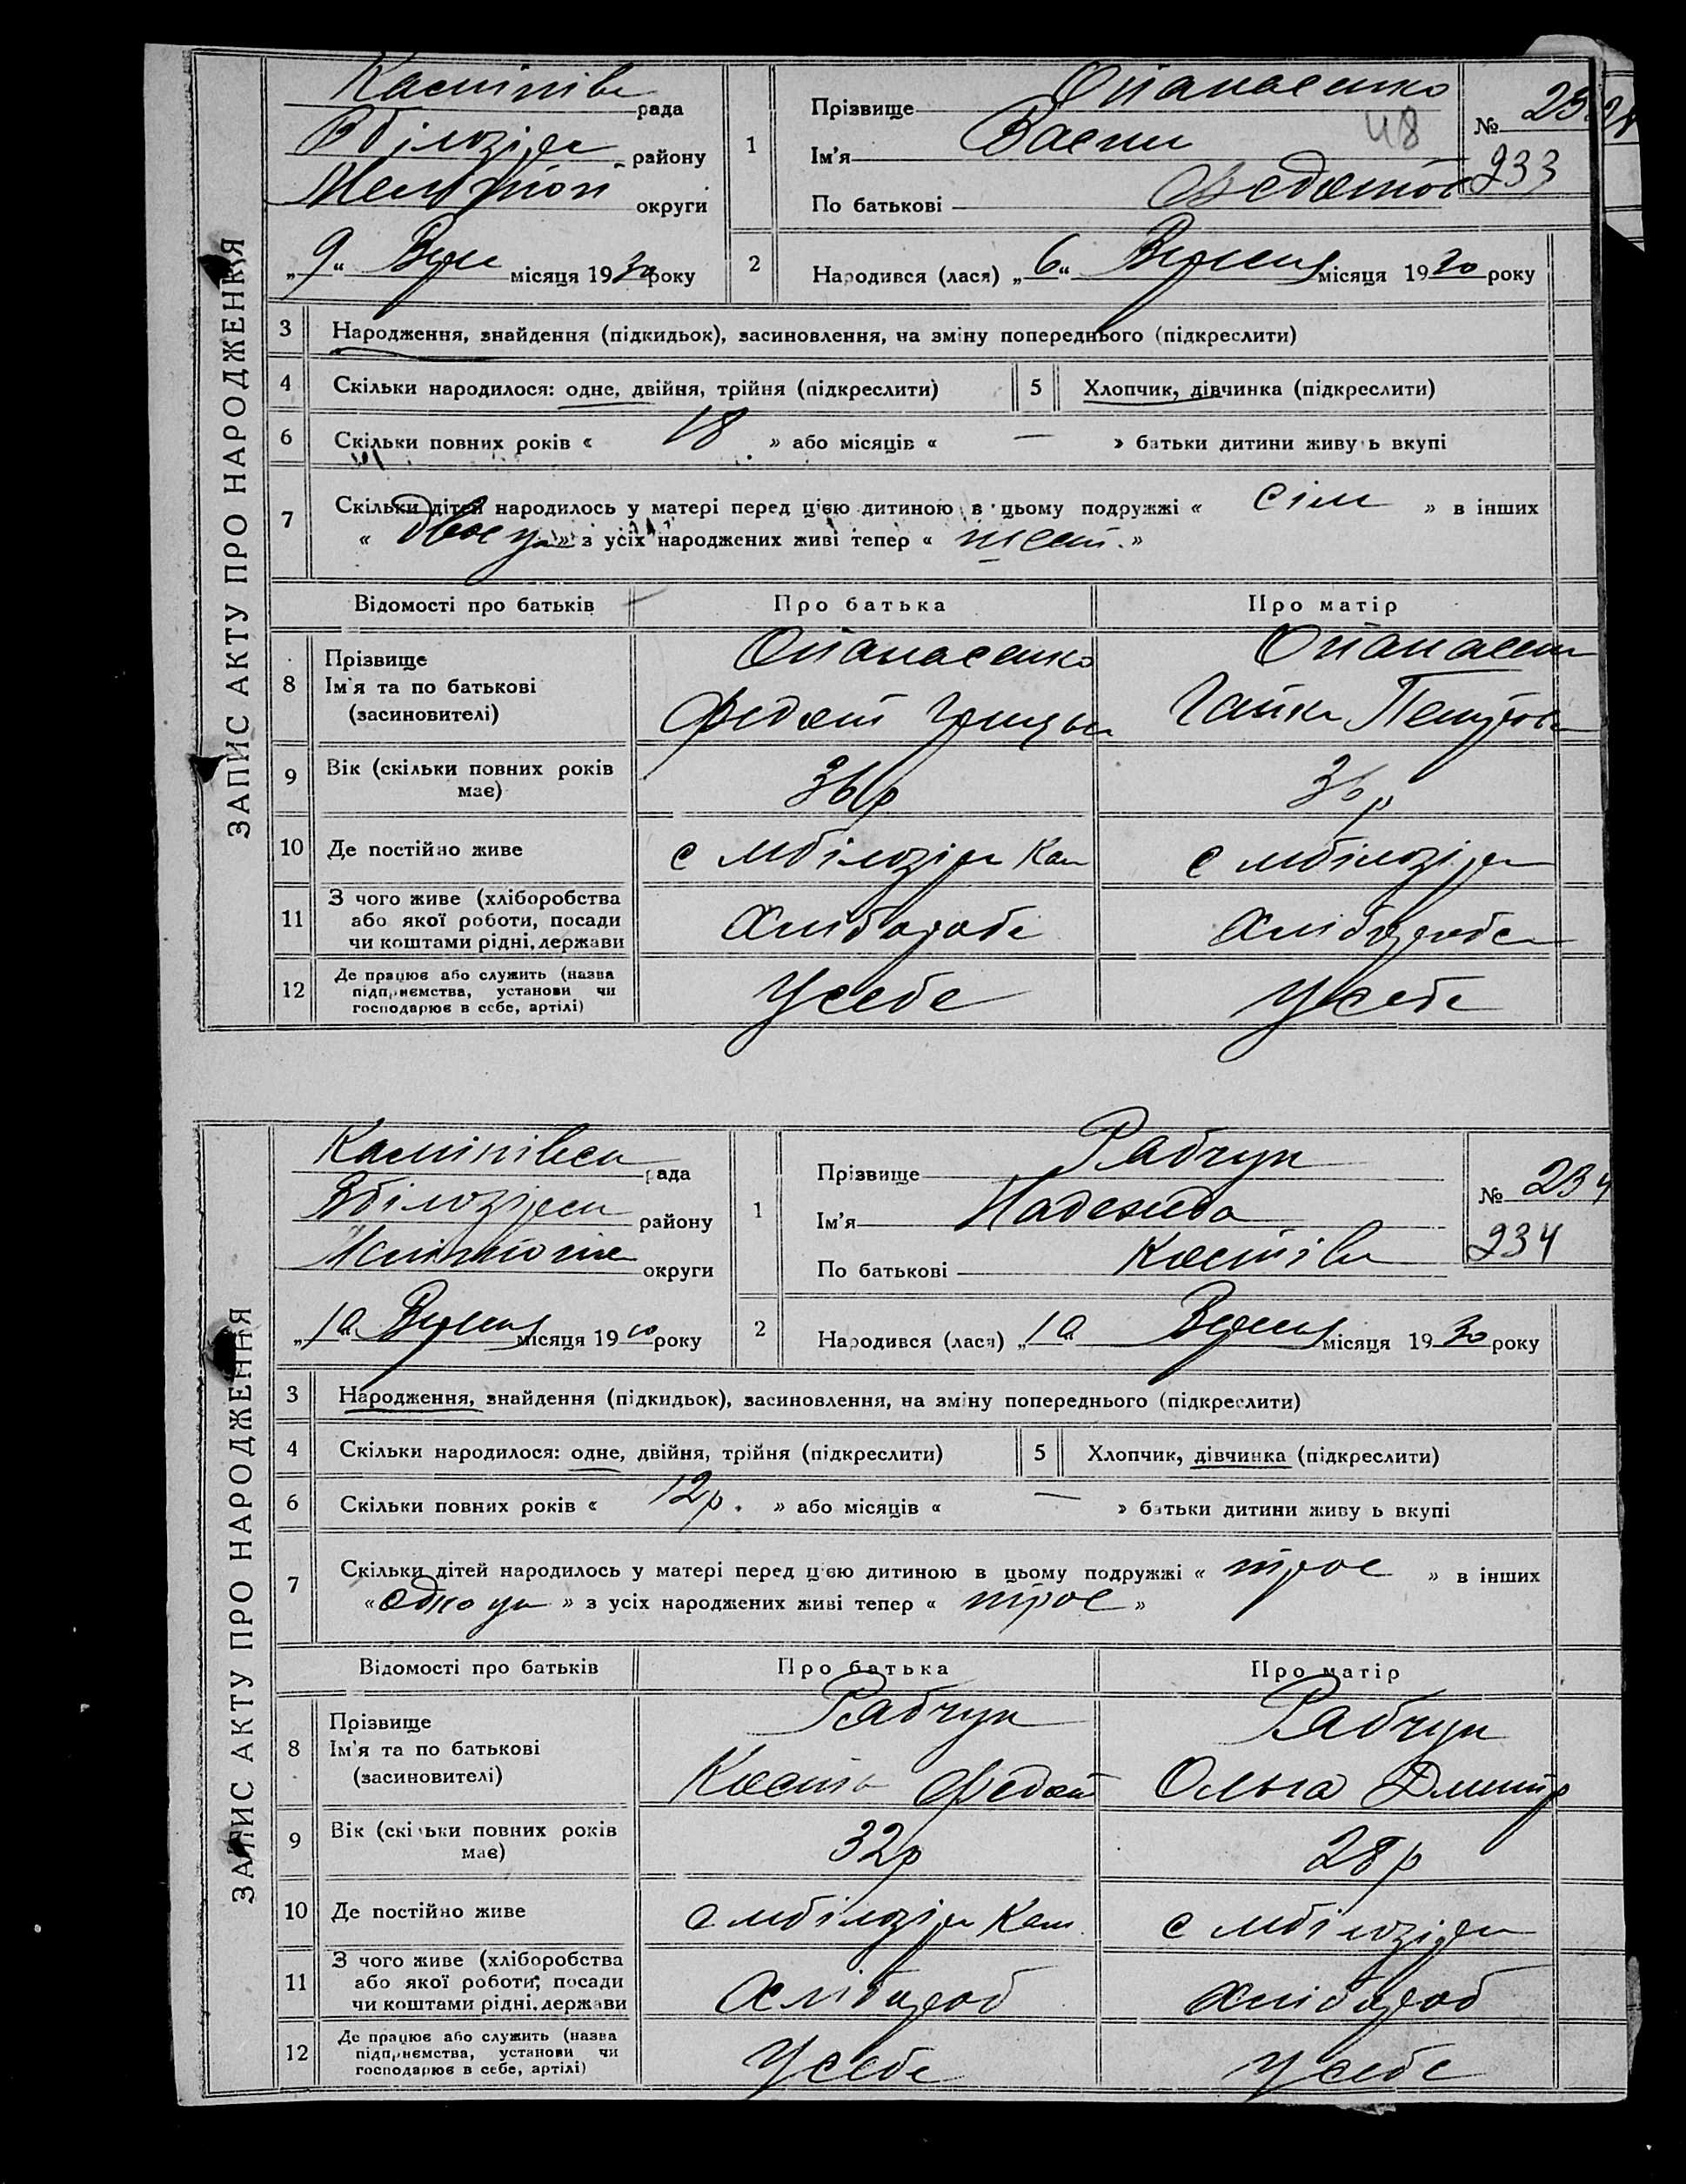 ЗАПИС АКТУ ПРО НАРОДЖЕННЯ
рада
району
округи
„9“ Вере місяця 1930 року
1
Прізвище Опанасенко
Ім'я
48
По батькові Федотов
№ 233
233
2 Народився (лася) „6“ Вересня місяця 1930 року
3 Народження, знайдення (підкидьок), засиновлення, на зміну попереднього (підкреслити)
4 Скільки народилося: одне, двійня, трійня (підкреслити)
5 Хлопчик, дівчинка (підкреслити)
6 Скільки повних років « 18 » або місяців « — » батьки дитини живуть вкупі
7 Скільки дітей народилось у матері перед цією дитиною в цьому подружжі « сім » в інших
« двое » з усіх народжених живі тепер « шест. »
Відомості про батьків Про батька Про матір
8 Прізвище
Ім'я та по батькові
(засиновителі)
Опанасенко
Федот Грицьк
Опанасен
Петров
9 Вік (скільки повних років
має)
36 р
36 р
10 Де постійно живе
с мбілозір Кам
с мбілозір
11 З чого живе (хліборобства
або якої роботи, посади
чи коштами рідні, держави
Хлібороб
Хлібороб
12 Де працює або служить (назва
підприємства, установи чи
господарює в себе, артілі)
У себе
У себе
ЗАПИС АКТУ ПРО НАРОДЖЕННЯ
рада
району
округи
місяця 19 року
1
Прізвище Рабчун
Ім'я Надежда
По батькові Костів
№ 234
234
2 Народився (лася) Вересня місяця 1930 року
3 Народження, знайдення (підкидьок), засиновлення, на зміну попереднього (підкреслити)
4 Скільки народилося: одне, двійня, трійня (підкреслити)
5 Хлопчик, дівчинка (підкреслити)
6 Скільки повних років « 12р. » або місяців « — » батьки дитини живуть вкупі
7 Скільки дітей народилось у матері перед цією дитиною в цьому подружжі « трое » в інших
« одно » з усіх народжених живі тепер « трое »
Відомості про батьків Про батька Про матір
8 Прізвище
Ім'я та по батькові
(засиновителі)
Рабчун
Федот
Рабчун
Ольга Дмитр
9 Вік (скільки повних років
має)
32р
28р
10 Де постійно живе
с мбілозір Кам
с мбілозір
11 З чого живе (хліборобства
або якої роботи, посади
чи коштами рідні, держави
Хлібороб
хлібороб
12 Де працює або служить (назва
підприємства, установи чи
господарює в себе, артілі)
У себе
У себе